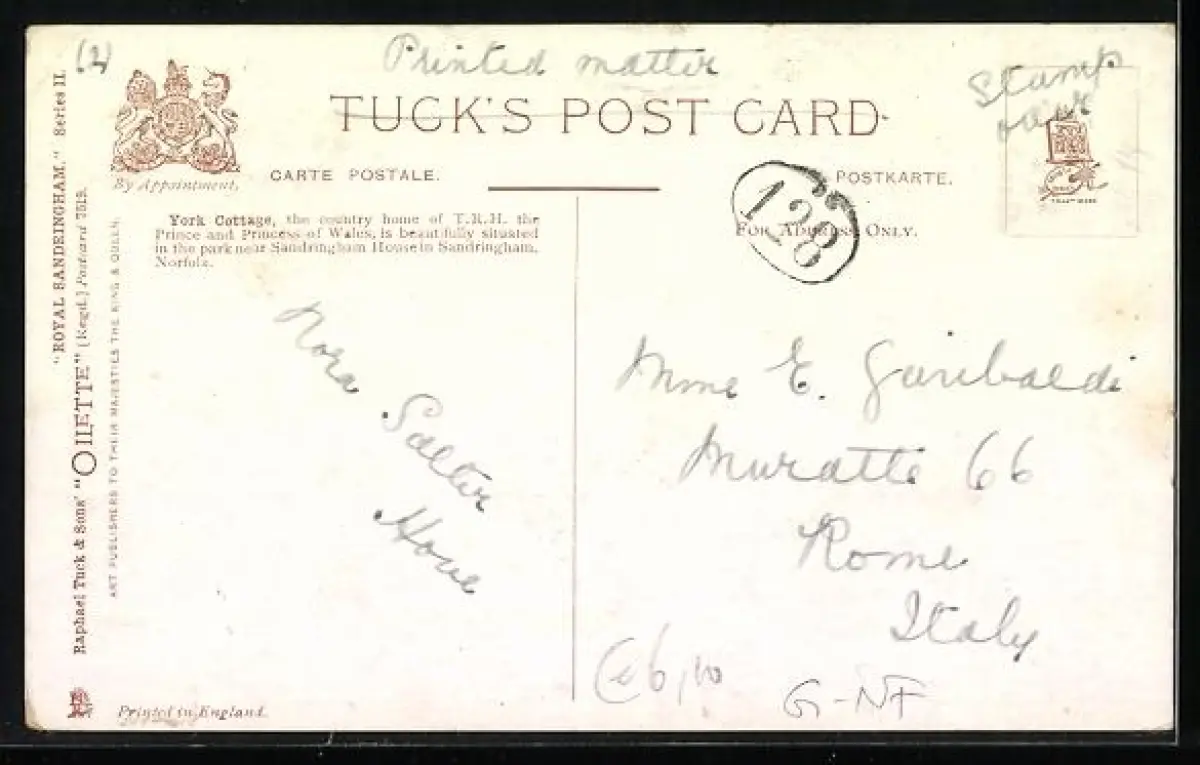 (2)
Printed matter
TUCK'S POST CARD
Stamp
over
By Appointment,
CARTE POSTALE.
POSTKARTE.
128
FOR ADDRESS ONLY.
York Cottage, the country home of T.R.H. the
Prince and Princess of Wales, is beautifully situated
in the park near Sandringham House in Sandringham,
Norfolk.
"ROYAL SANDRINGHAM." Series II.
Raphael Tuck & Sons' "OILETTE" (Regd.) Postcard
ART PUBLISHERS TO THEIR MAJESTIES THE KING & QUEEN.
Nora
Salter
Hove
Mme E. Garibaldi
Muratte 66
Rome
Italy
G-NF
Printed in England.